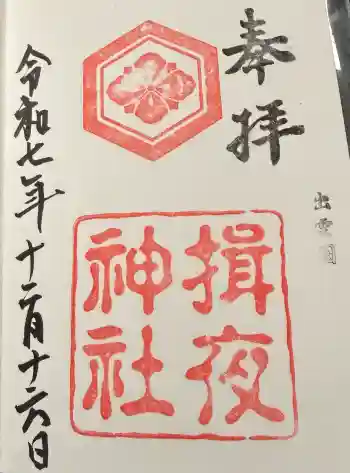 奉拝
出雲國
揖夜
神社
令和七年十二月十六日